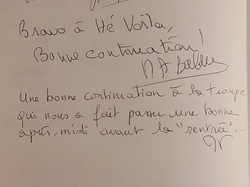 Bravo à Hé Voilà,
Bonne continuation !
Une bonne continuation à la troupe
qui nous a fait passer une bonne
après-midi avant la "rentrée"...